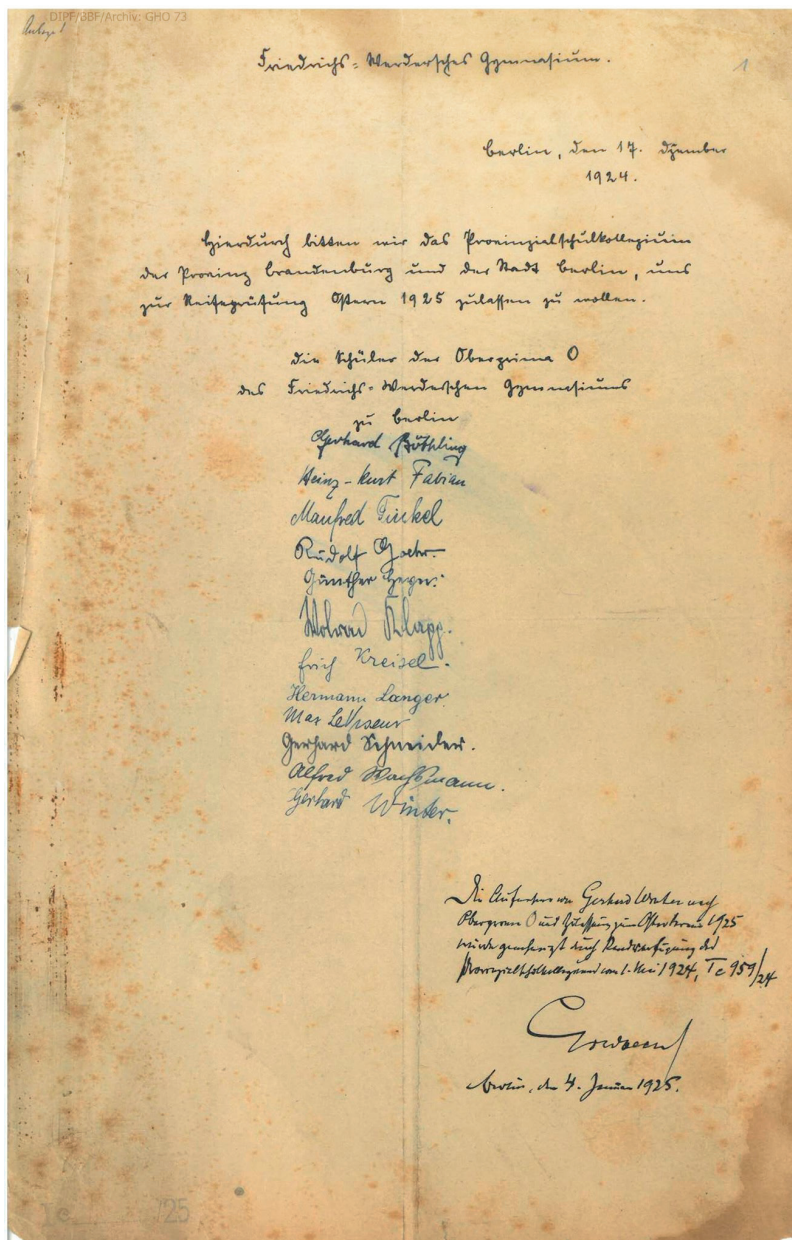 DIPF/BBF/Archiv: GHO 73
Anlage 1
1
Friedrichs-Werdersches Gymnasium.
Berlin, den 17. Dezember
1924.
Hierdurch bitten wir das Provinzialschulkollegium
der Provinz Brandenburg und der Stadt Berlin, uns
zur Reifeprüfung Ostern 1925 zulassen zu wollen.
Die Schüler der Oberprima O
des Friedrichs-Werderschen Gymnasiums
zu Berlin
Gerhard Böthling
Heinz-Kurt Fabian
Manfred Finkel
Rudolf
Günther Heyer.
Wolrad Klapp.
Erich Kreisel.
Hermann Langer
Max LeViseur
Gerhard Schneider.
Alfred Wachsmann.
Gerhard Winter.
Die Aufnahme von Gerhard Winter nach
Oberprima O und Zulassung zum Ostertermin 1925
wurde genehmigt durch Randverfügung des
Provinzialschulkollegiums vom 1. Mai 1924, Ic 959/24
Berlin, den 4. Januar 1925.
Ic /25